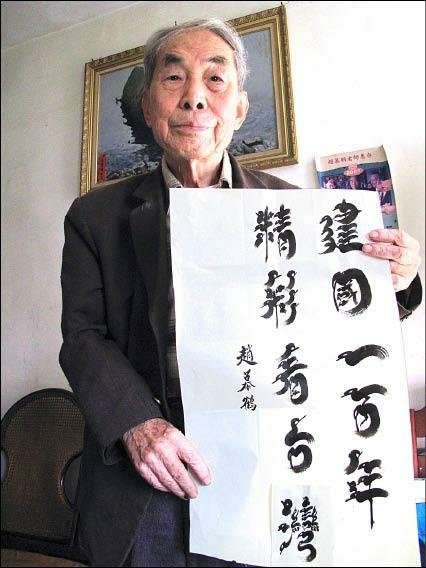 建國一百年
精彩看台灣
趙慕鶴
趙慕鶴老師惠存